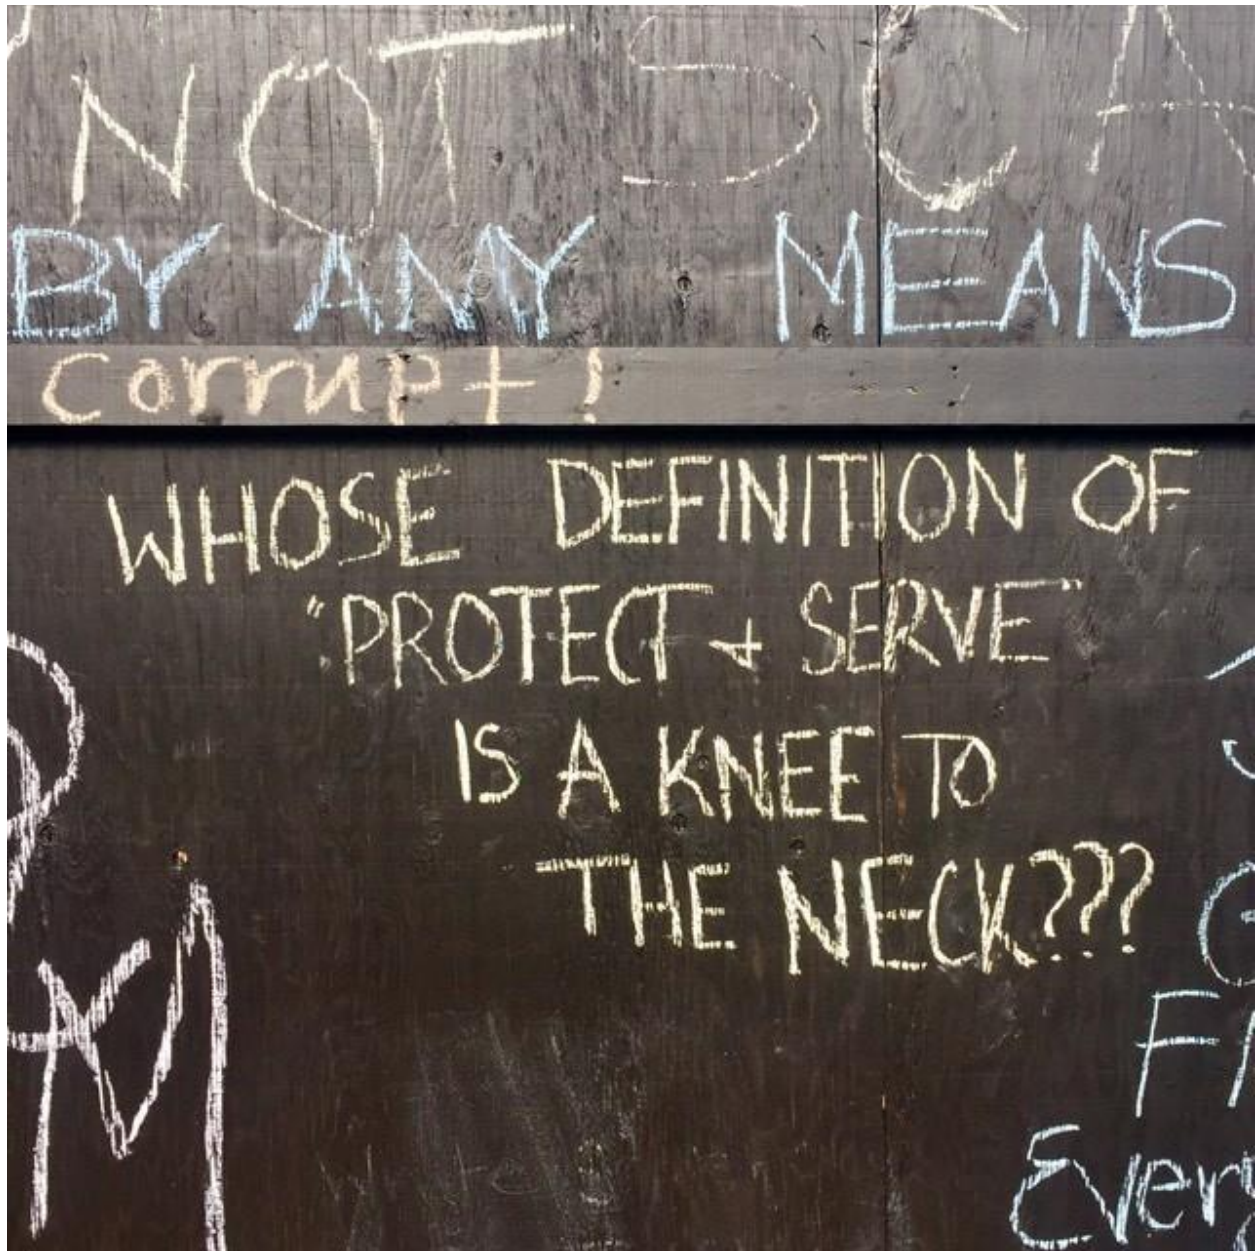 NOT
BY ANY MEANS
corrupt!
WHOSE DEFINITION OF
"PROTECT + SERVE"
IS A KNEE TO
THE NECK???